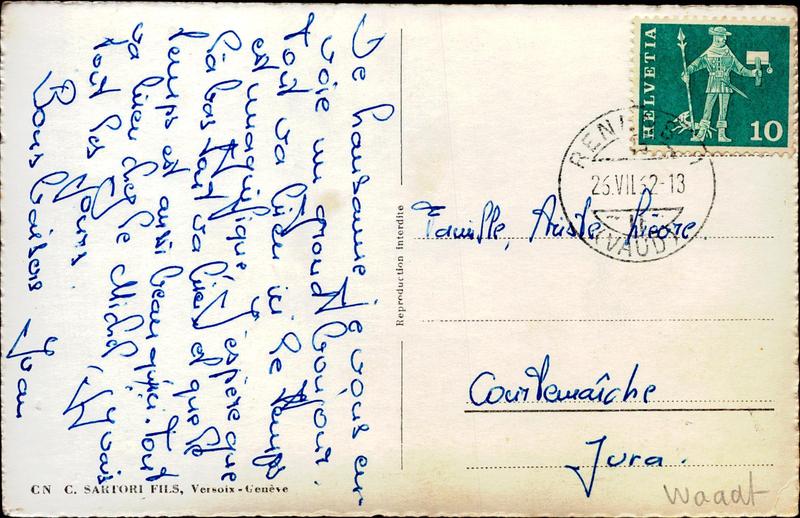 De Lausanne je vous en-
voie un grand bonjour.
Tout va bien ici le temps
est magnifique J'espère que
là bas tout va bien et que le
temps est aussi beau qu'ici. Tout
va bien chez le Michel,
tout les jours.
Bons baisers Yvan
HELVETIA
10
RENENS
26.VII.62-13
(VAUD)
Famille,
Courtemaîche
Jura.
Waadt
Reproduction interdite
CN C. SARTORI FILS, Versoix-Genève